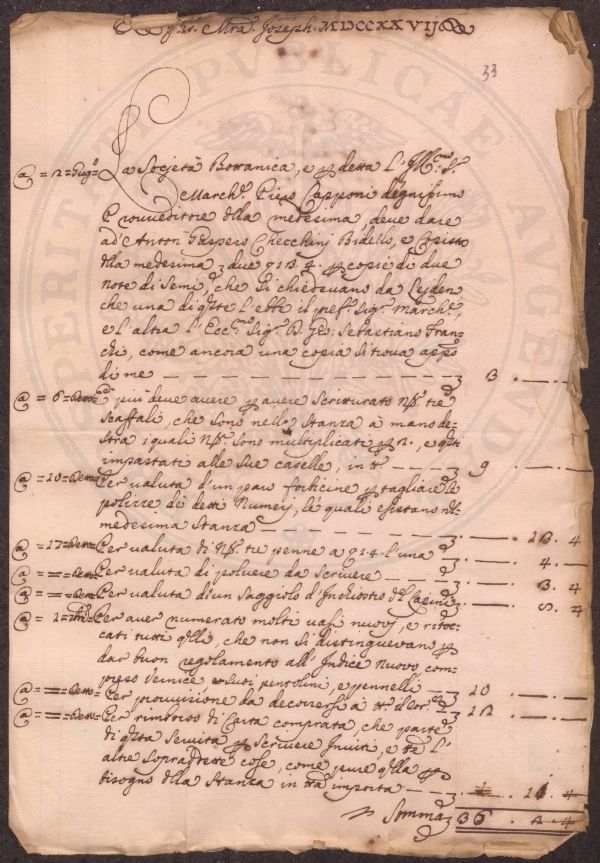 Jes. Mra. Joseph. MDCCXXVIJ
33
@ = 2 = Giug.o La Società Bottanica, e per detta l'Ill.mo S.
March.e Piero Capponi degnissimo
Provveditore della medesima deve dare
ad Anton Gaspero Checchinj Bidello, e Copista
della medesima
copie di due
note di Semi, che si chiedevano da Lejden
che una di queste l'ebbe il pref.o Sig.r March.e,
e l'altra l'Ecc.mo Sig.r D. Gio: Sebastiano Fran-
chi, come ancora una copia si trova app.o
di me — 3 B . — . —
@ = 6 = Detto = E più deve avere per avere Scritturato N.o tre
Scaffali, che sono nella Stanza a mano de-
stra i quali N.o sono multiplicati
impastati alle Sue caselle, in tt.o — 3 9 . — . —
@ = 10 = Detto = Per valuta d'un paio forbicine per tagliare le
polizze de detti Numeri, le quali esistano nella
medesima Stanza — 3 . — . 13 . 4
@ = 17 = Detto = Per valuta di N.o tre penne a 14 l'una 3 . — . 4 . —
@ = — = Detto = Per valuta di polvere da Scrivere — 3 . — . 3 . 4
@ = — = Detto = Per valuta d'un Saggiolo d'Inchiostro del 3 . — . 5 . 4
@ = 2 = Per aver numerato molti vasi nuovi, e ritoc-
cati tutti quelli, che non si distinguevano per
dar buon regolamento all'Indice Nuovo com-
preso Vernice e suoi pentolini, e pennelli — 3 20 . — . —
@ = — = Detto = Per provvisione da decorersi a tt.o 3 12 . — . —
@ = — = Detto = Per rimborso di Carta comprata, che parte
di questa Servita per Scrivere Inviti, e tt.e l'
altre Sopraddette cose, come pure quella per
bisogno della Stanza in tutta importa — 3 . 1 . 16 . 4
Somma 3 36 . 2 . 4